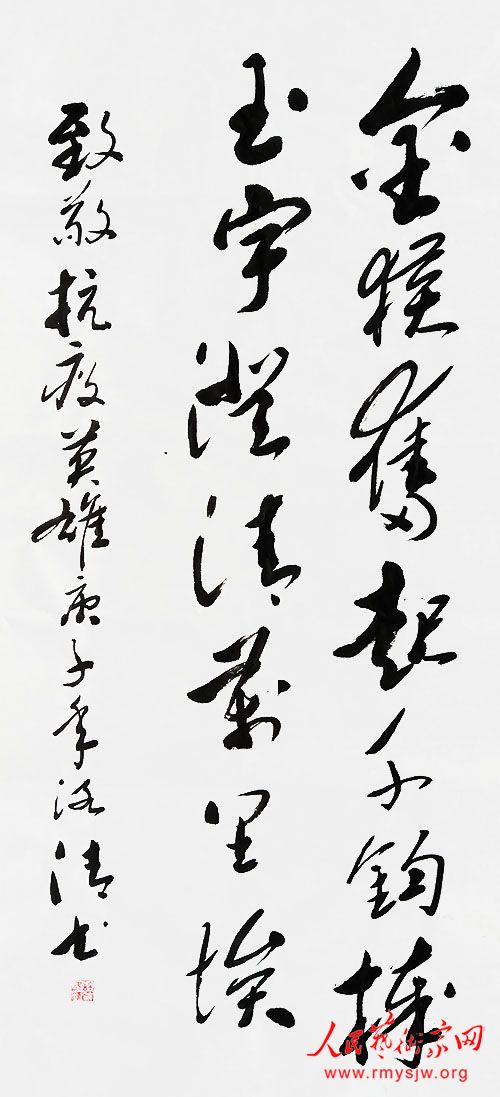 金猴奮起千鈞棒
玉宇澄清萬里埃
致敬抗疫英雄庚子年洛清书
人民藝術家网
www.rmysjw.org